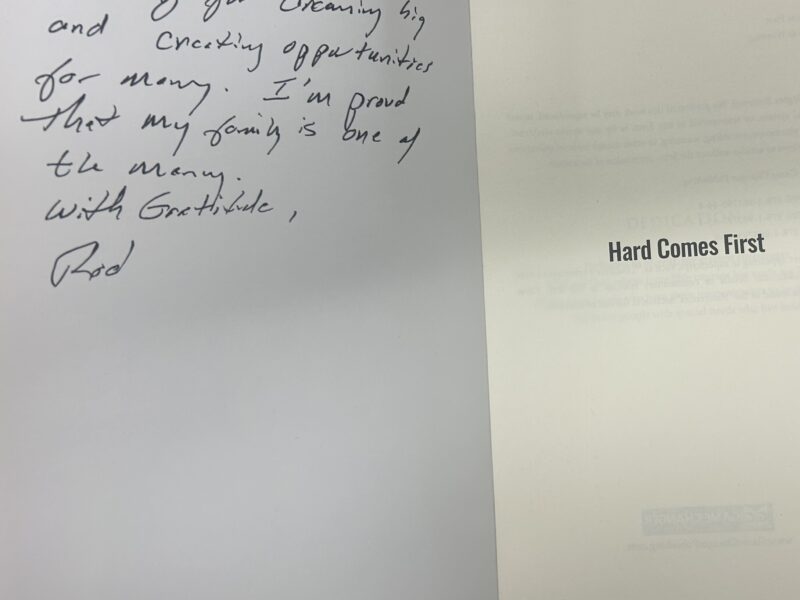 dreaming big
and creating opportunities
for many. I'm proud
that my family is one of
the many.
With Gratitude,
Rod
Hard Comes First